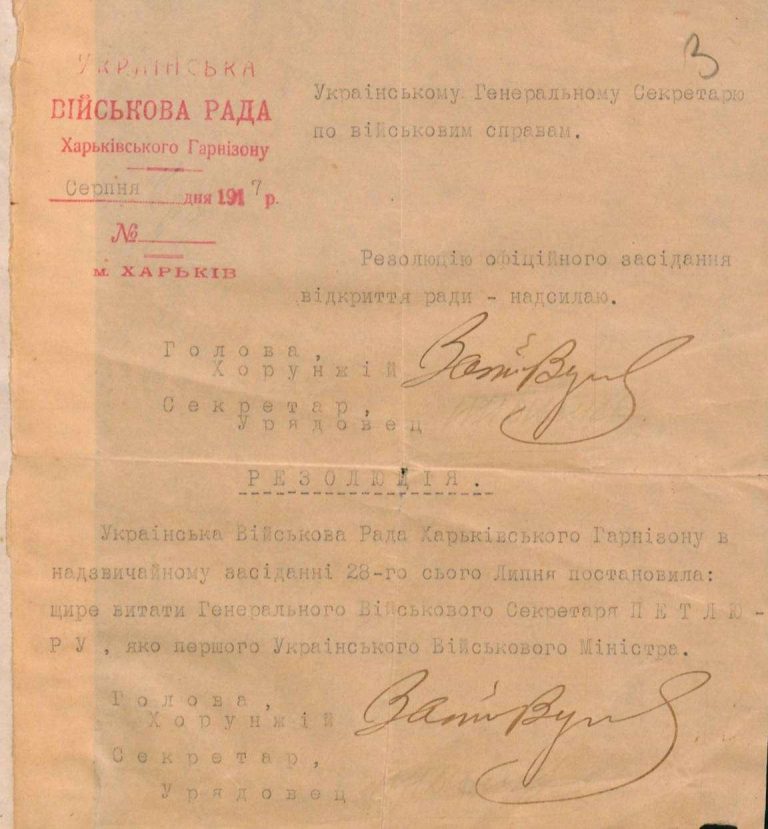 3
УКРАІНСЬКА
ВІЙСЬКОВА РАДА
Харьківського Гарнізону
Серпня дня 1917 р.
№
м. ХАРЬКІВ
Украінському Генеральному Секретарю
по військовим справам.
Резолюцію офіційного засідання
відкриття ради - надсилаю.
Голова,
Хорунжій
Секретар,
Урядовец
РЕЗОЛЮЦІЯ.
Украінська Військова Рада Харьківського Гарнізону в
надзвичайному засіданні 28-го сього Липня постановила:
щире витати Генерального Військового Секретаря ПЕТЛЮ-
РУ, яко першого Украінського Військового Міністра.
Голова,
Хорунжій
Секретар,
Урядовец